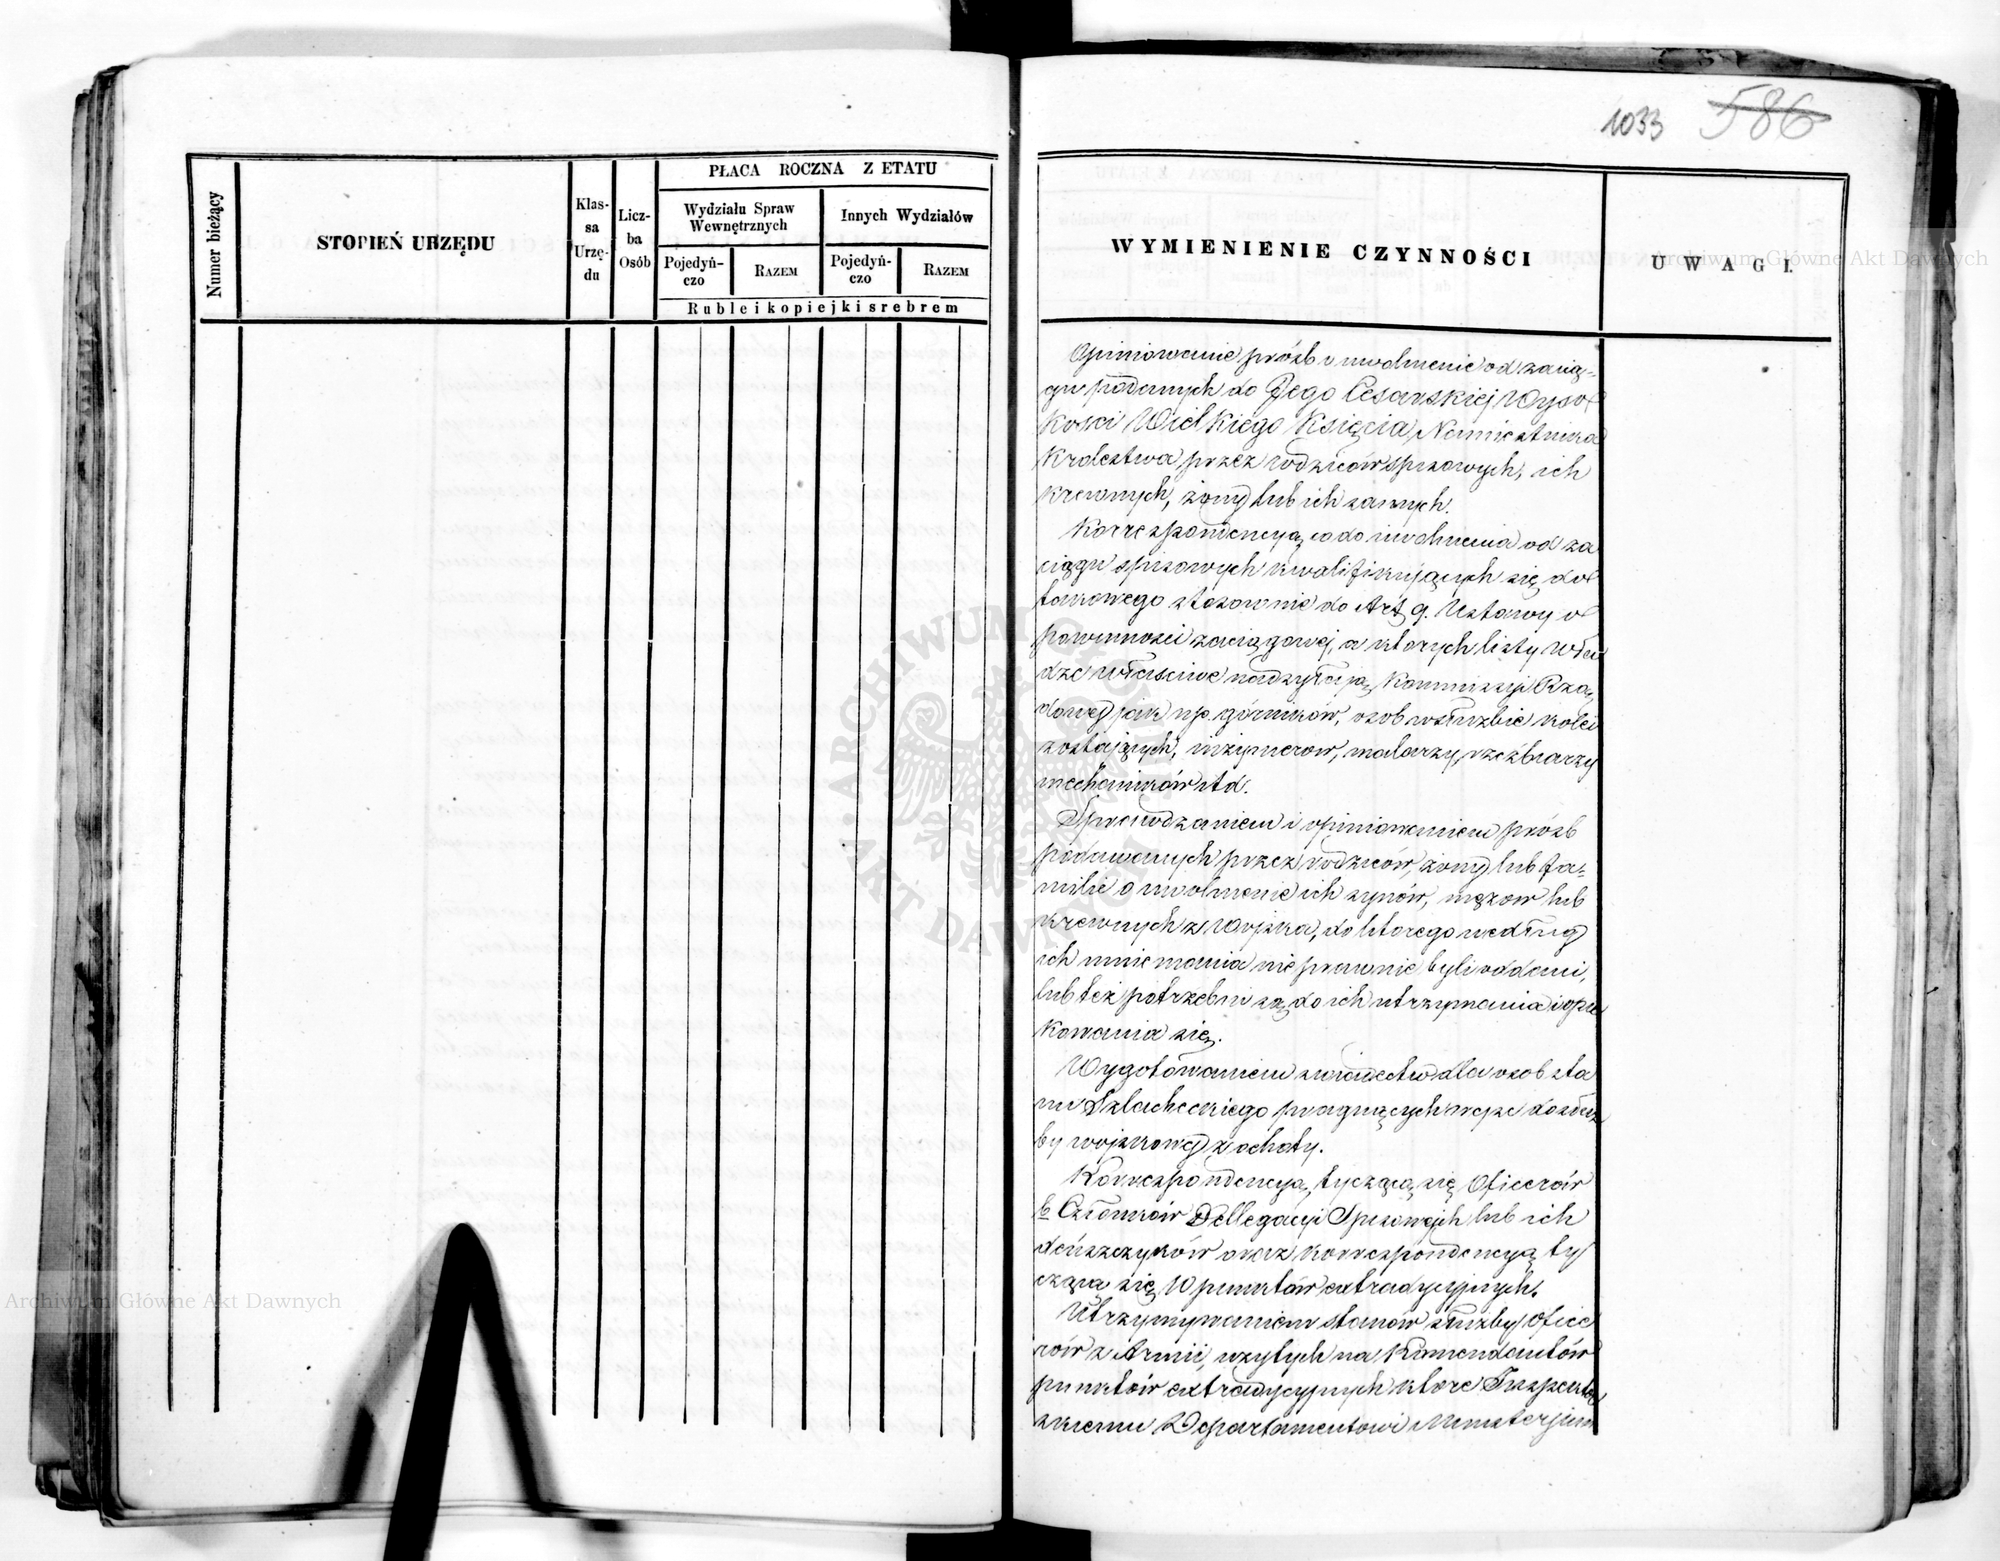 1033 586
Numer bieżący
STOPIEŃ URZĘDU
Klas-
sa
Urzę-
du
Licz-
ba
Osób
PŁACA ROCZNA Z ETATU
Wydziału Spraw
Wewnętrznych
Innych Wydziałów
Pojedyń-
czo
RAZEM
Pojedyń-
czo
RAZEM
Ruble i kopiejki srebrem
WYMIENIENIE CZYNNOŚCI
UWAGI.
Opiniowanie próśb o uwolnienie od zacią-
gu podanych do Jego Cesarskiej Wyso
kości Wielkiego Księcia, Namiestnika
Królestwa przez rodziców spisowych, ich
krewnych, żony lub ich samych.
Korrespondencyą co do uwolnienia od za
ciągu spisowych kwalifikujących się do
takowego stosownie do Art 9. Ustawy o
powinności zaciągowej, a których listy Wła
dze właściwe nadsyłają Kommissyi Rzą
dowej jak np. górników, osob w służbie kolei
zostających, inżynierow, malarzy, rzeźbiarzy
mechaników itd.
Sprawdzaniem i opiniowaniem próśb
podawanych przez rodziców, żony lub fa-
milie o uwolnienie ich synów, mężow lub
krewnych z Wojska, do którego według
ich mniemania nieprawnie byli oddani,
lub też potrzebni są do ich utrzymania i opie
kowania się.
Wygotowaniem świadectw dla osob sta
nu Szlacheckiego pragnących wejść do służ
by wojskowej z ochoty.
Korrespondencyą tyczącą się Oficerów
b. Członków Dellegacyi Spisowych lub ich
deńszczyków oraz korrespondencyą ty
czącą się W punktów extradycyjnych.
Utrzymywaniem stanów służby Ofice
rów z Armii, użytych na Komendantów
punktów extradycyjnych które Inspektor
skiemu Departamentowi Ministerjum
Archiwum Główne Akt Dawnych
Archiwum Główne Akt Dawnych